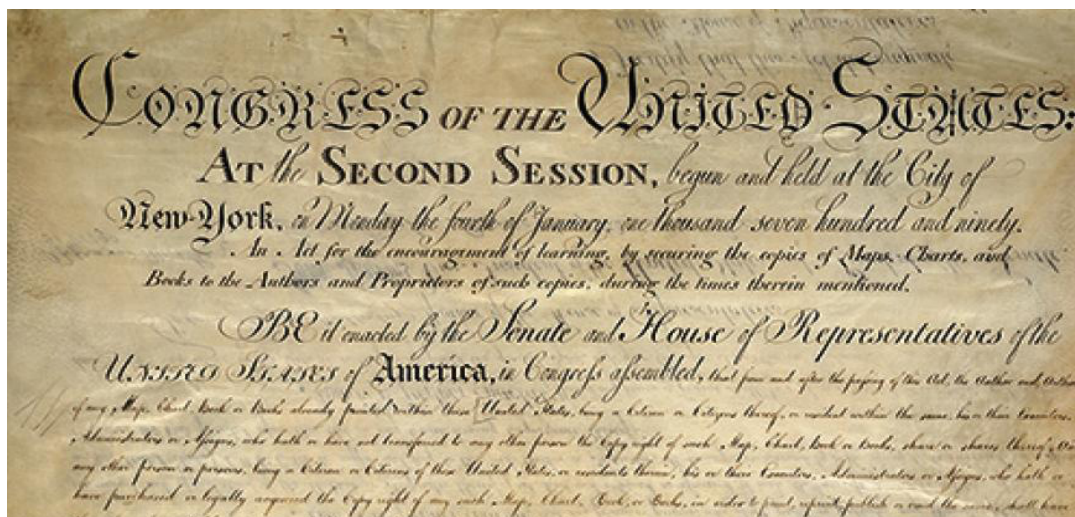 CONGRESS OF THE UNITED STATES:
AT the SECOND SESSION, begun and held at the City of
New-York, on Monday the fourth of January, one thousand seven hundred and ninety.
An Act for the encouragement of learning, by securing the copies of Maps, Charts, and
Books to the Authors and Proprietors of such copies, during the times therein mentioned.
BE it enacted by the Senate and House of Representatives of the
UNITED STATES of America, in Congress assembled, that from and after the passing of this Act, the Author and
of any Map, Chart, Book or Books already printed within these United States, being a Citizen or Citizens thereof, or resident within the same, his or their Executors,
Administrators or Assigns, who hath or have not transferred to any other person the Copy right of such Map, Chart, Book or Books, share or shares thereof,
any other person or persons, being a Citizen or Citizens of these United States, or residents therein, his or their Executors, Administrators or Assigns, who hath or
have purchased or legally acquired the Copy right of any such Map, Chart, Book, or Books, in order to print, reprint, publish or vend the same, shall have